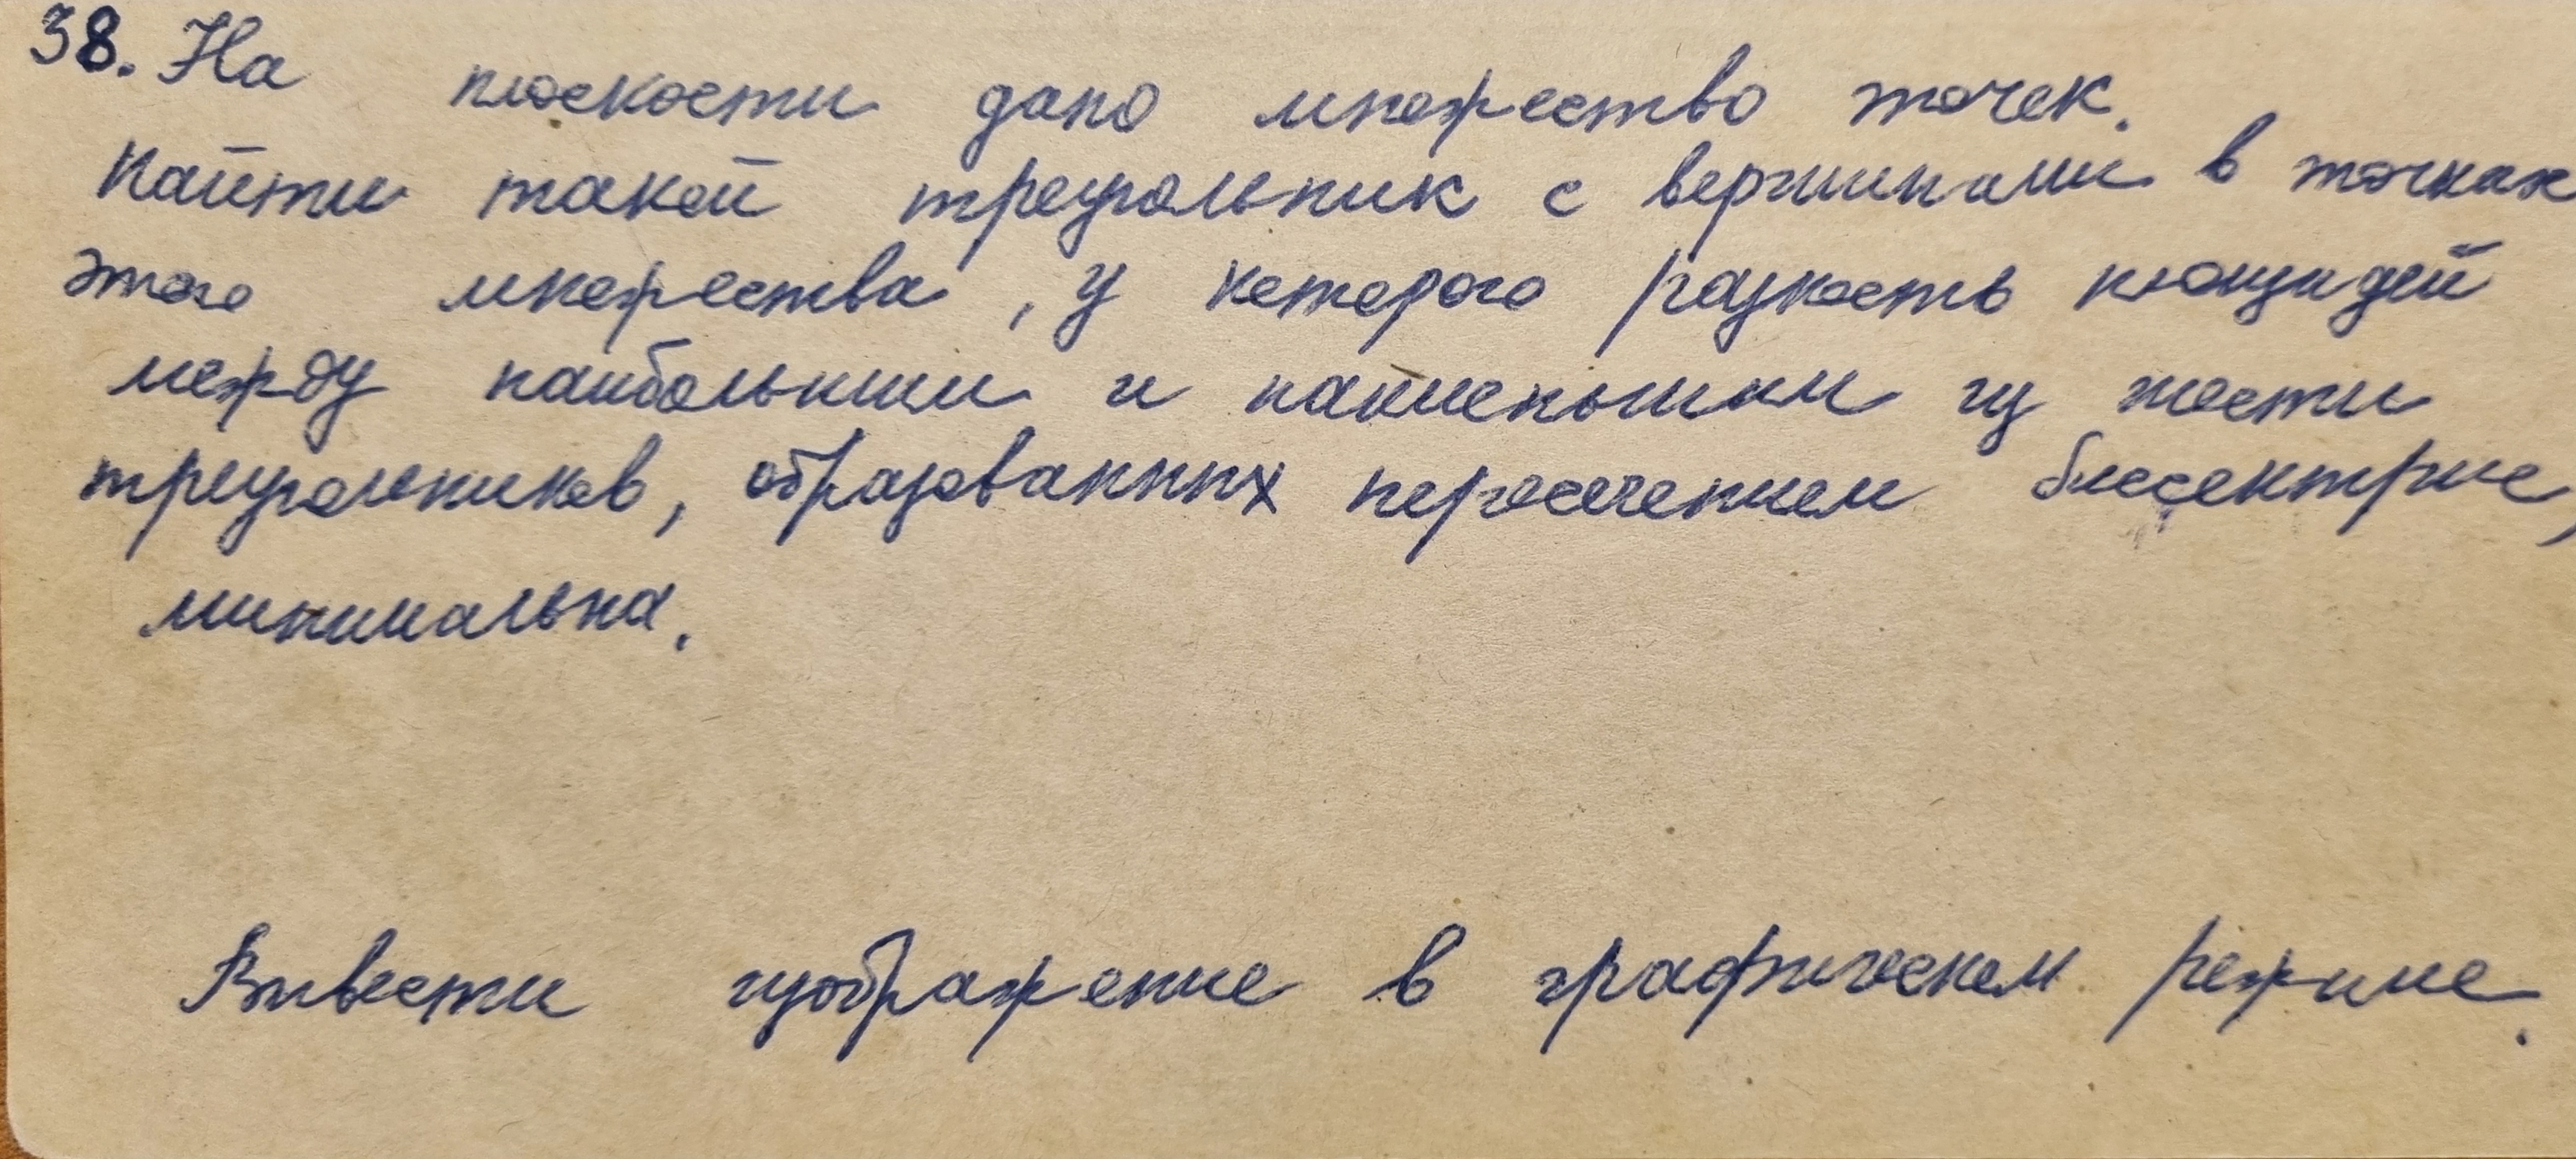 38. На плоскости дано множество точек.
Найти такой треугольник с вершинами в точках
этого множества, у которого разность площадей
между наибольшим и наименьшим из шести
треугольников, образованных пересечением биссектрис,
минимальна.
Вывести изображение в графическом режиме.